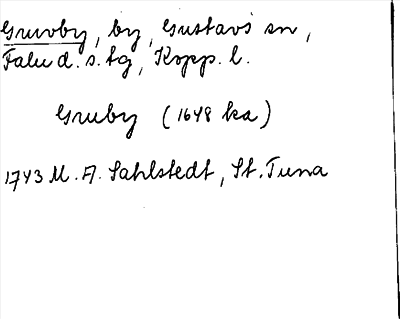 Gruvby, by, Gustavs sn,
Falu d. s. tg, Kopp. l.
Gruby (1648 ka)
1743 M. A. Sahlstedt, St. Tuna